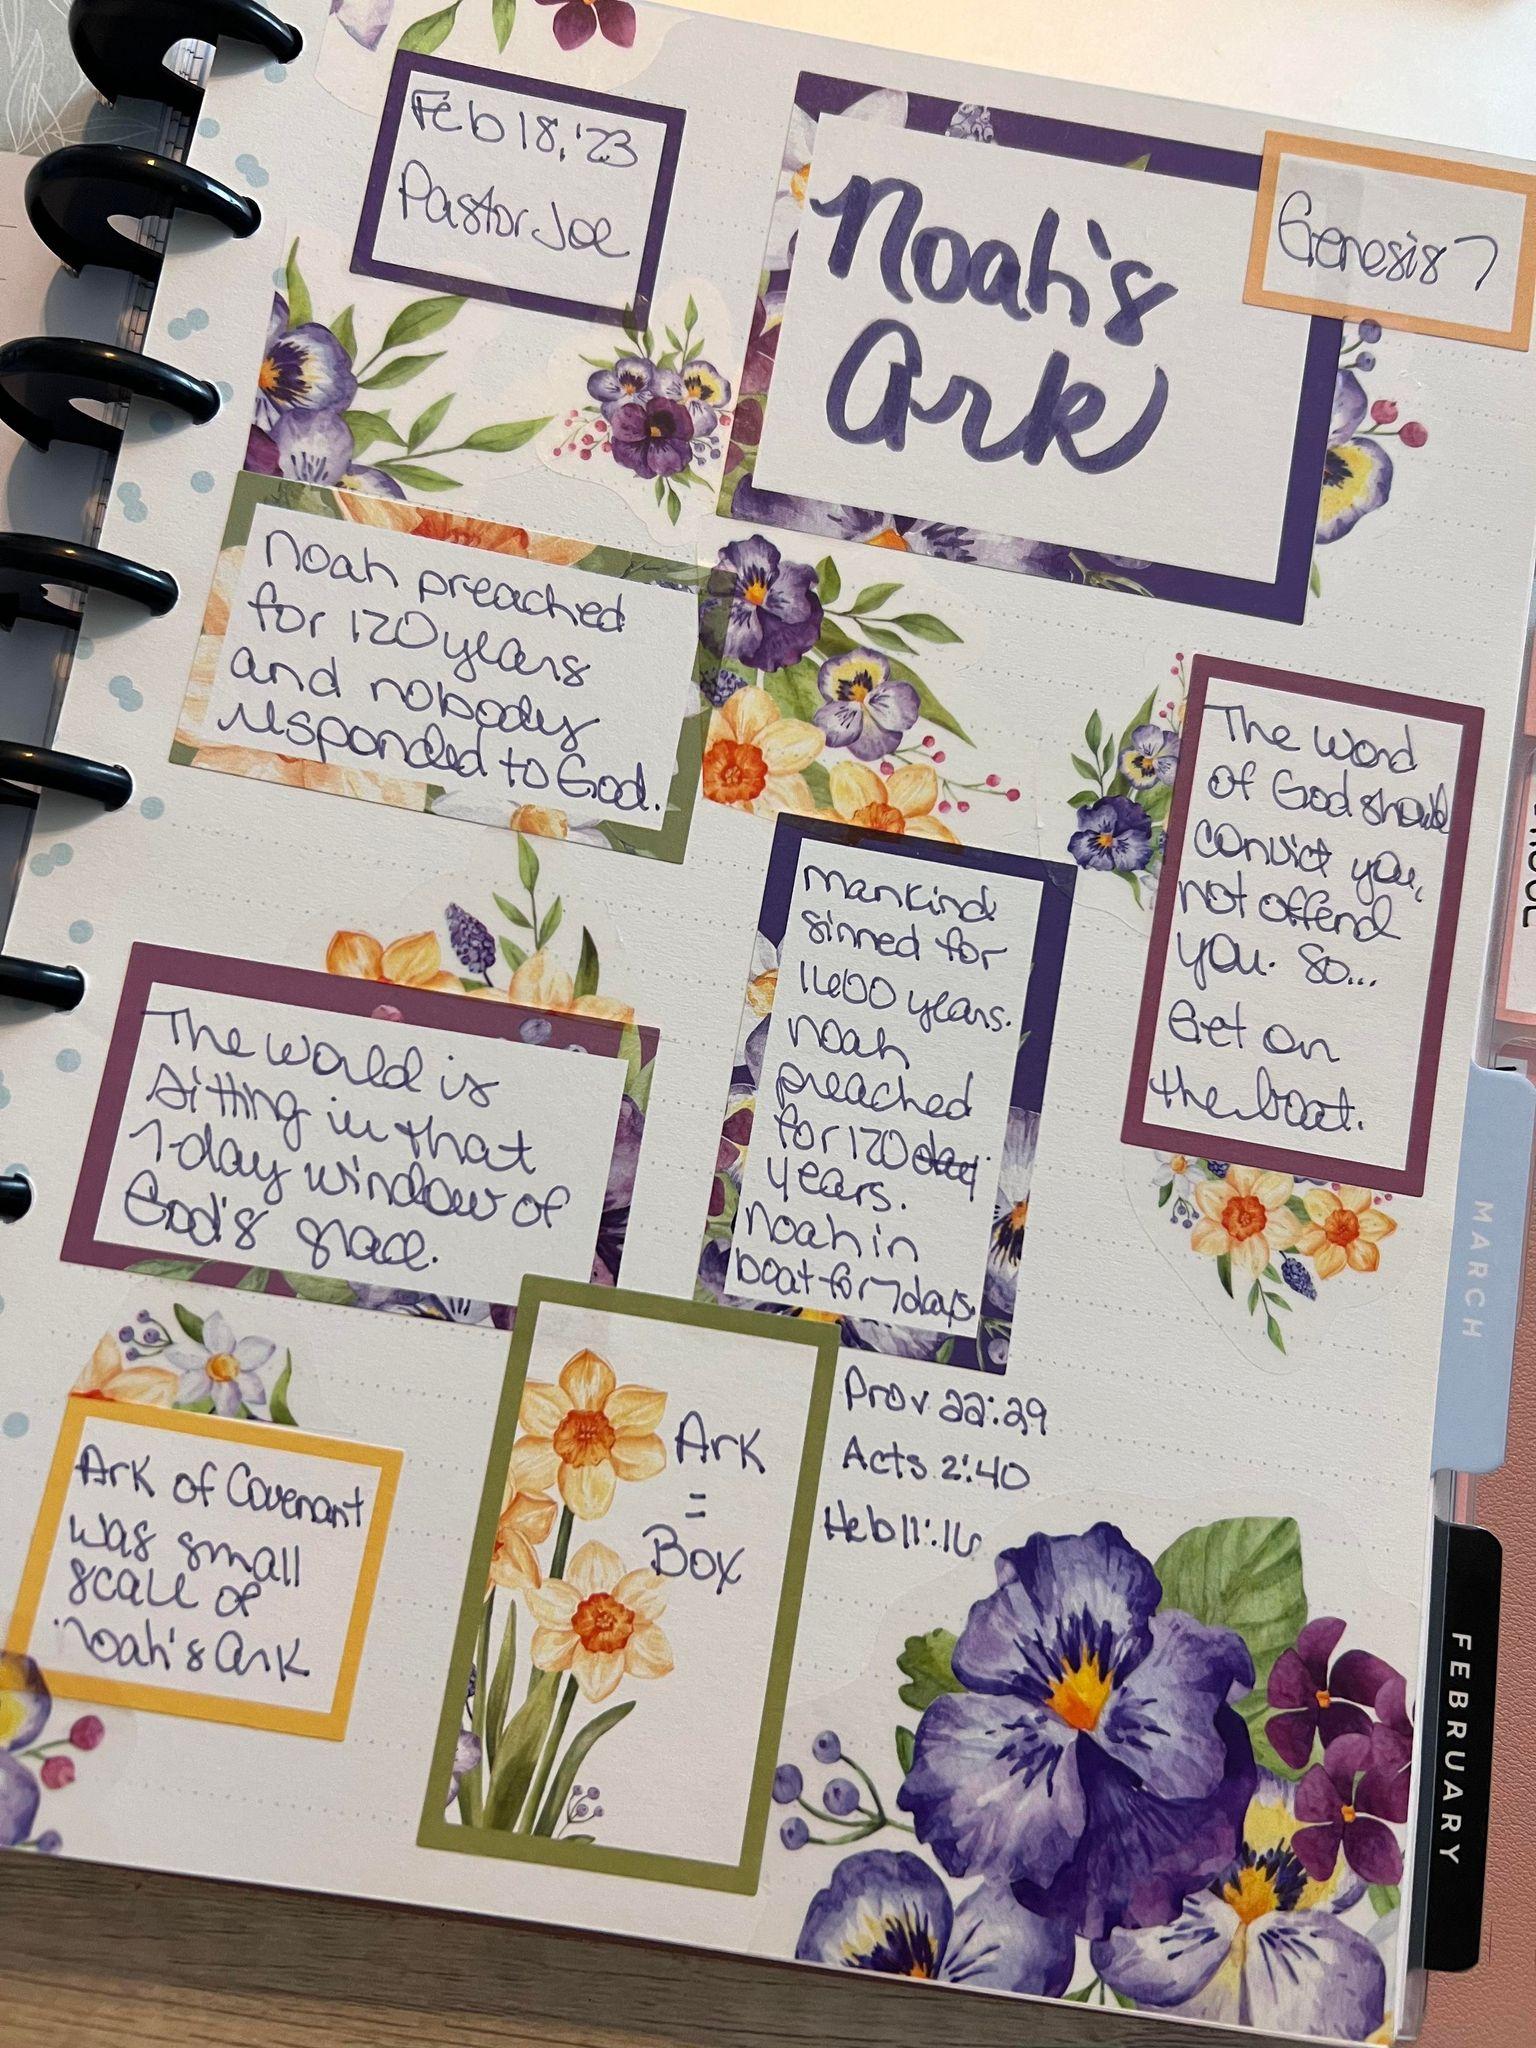 Feb 18, '23
Pastor Joe
Noah's
Ark
Genesis 7
Noah preached
for 120 years
and nobody
responded to God.
The Word
of God should
convict you,
not offend
you. So...
Get on
the boat.
Mankind
sinned for
1600 years.
Noah
preached
for 120 day
years.
Noah in
boat for 7 days.
The world is
sitting in that
7-day window of
God's grace.
Ark of Covenant
was small
scale of
Noah's Ark
Ark
=
Box
Prov 22:29
Acts 2:40
Heb 11:16
MARCH
FEBRUARY